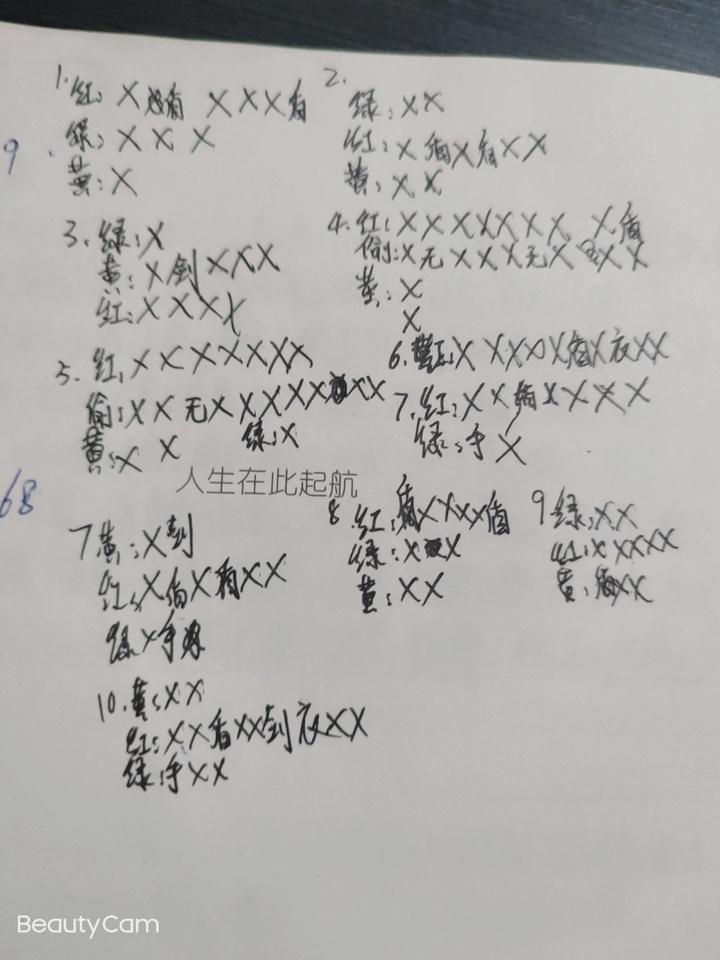 1. 红: X 盾 X X X 盾
绿: X X X
黄: X
9
2.
绿: X X
红: X 盾 X 盾 X X
黄: X X
3. 绿: X
黄: X 剑 X X X
红: X X X X
4. 红: X X X X X X X X 盾
偷: X 无 X X X 无 X X X
黄: X
X
5. 红: X X X X X X X
偷: X X 无 X X X X X X X
黄: X X
绿: X
6. 红: X X X X X 盾 X 衣 X X
7. 红: X X 盾 X X X X
绿: 手 X
人生在此起航
68
7 黄: X 剑
红: X 盾 X 盾 X X
绿 X 手
8 红: 盾 X X X X 盾
绿: X X
黄: X X
9 绿: X X
红: X X X X X
黄: 盾 X X
10. 黄: X X
红: X X 盾 X X 剑 衣 X X
绿: 手 X X
BeautyCam